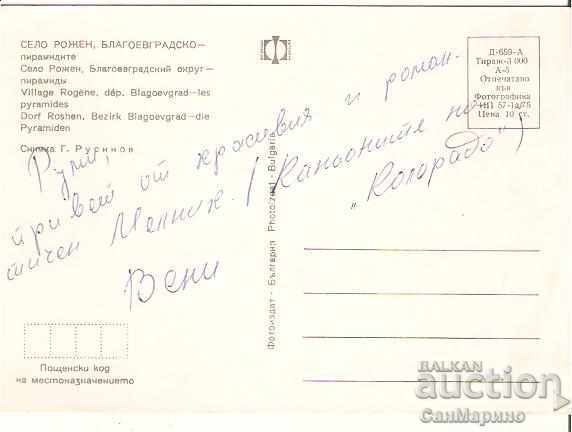 СЕЛО РОЖЕН, БЛАГОЕВГРАДСКО—
пирамидите
Село Рожен, Благоевградский округ—
пирамиды
Village Rogène, dép. Blagoevgrad—les
pyramides
Dorf Roshen, Bezirk Blagoevgrad—die
Pyramiden
Снимка Г. Русинов
Д-659-А
Тираж-3 000
А-5
Отпечатано
във
Фотографика
ЧП 57-1а/75
Цена 10 ст.
Руми,
привет от красивия и роман-
тичен Мелник. (Каньоните на
„Колорадо")
Вени
Фотоиздат - България Photoizdat - Bulgaria
Пощенски код
на местоназначението
BALKAN
auction
СанМарино